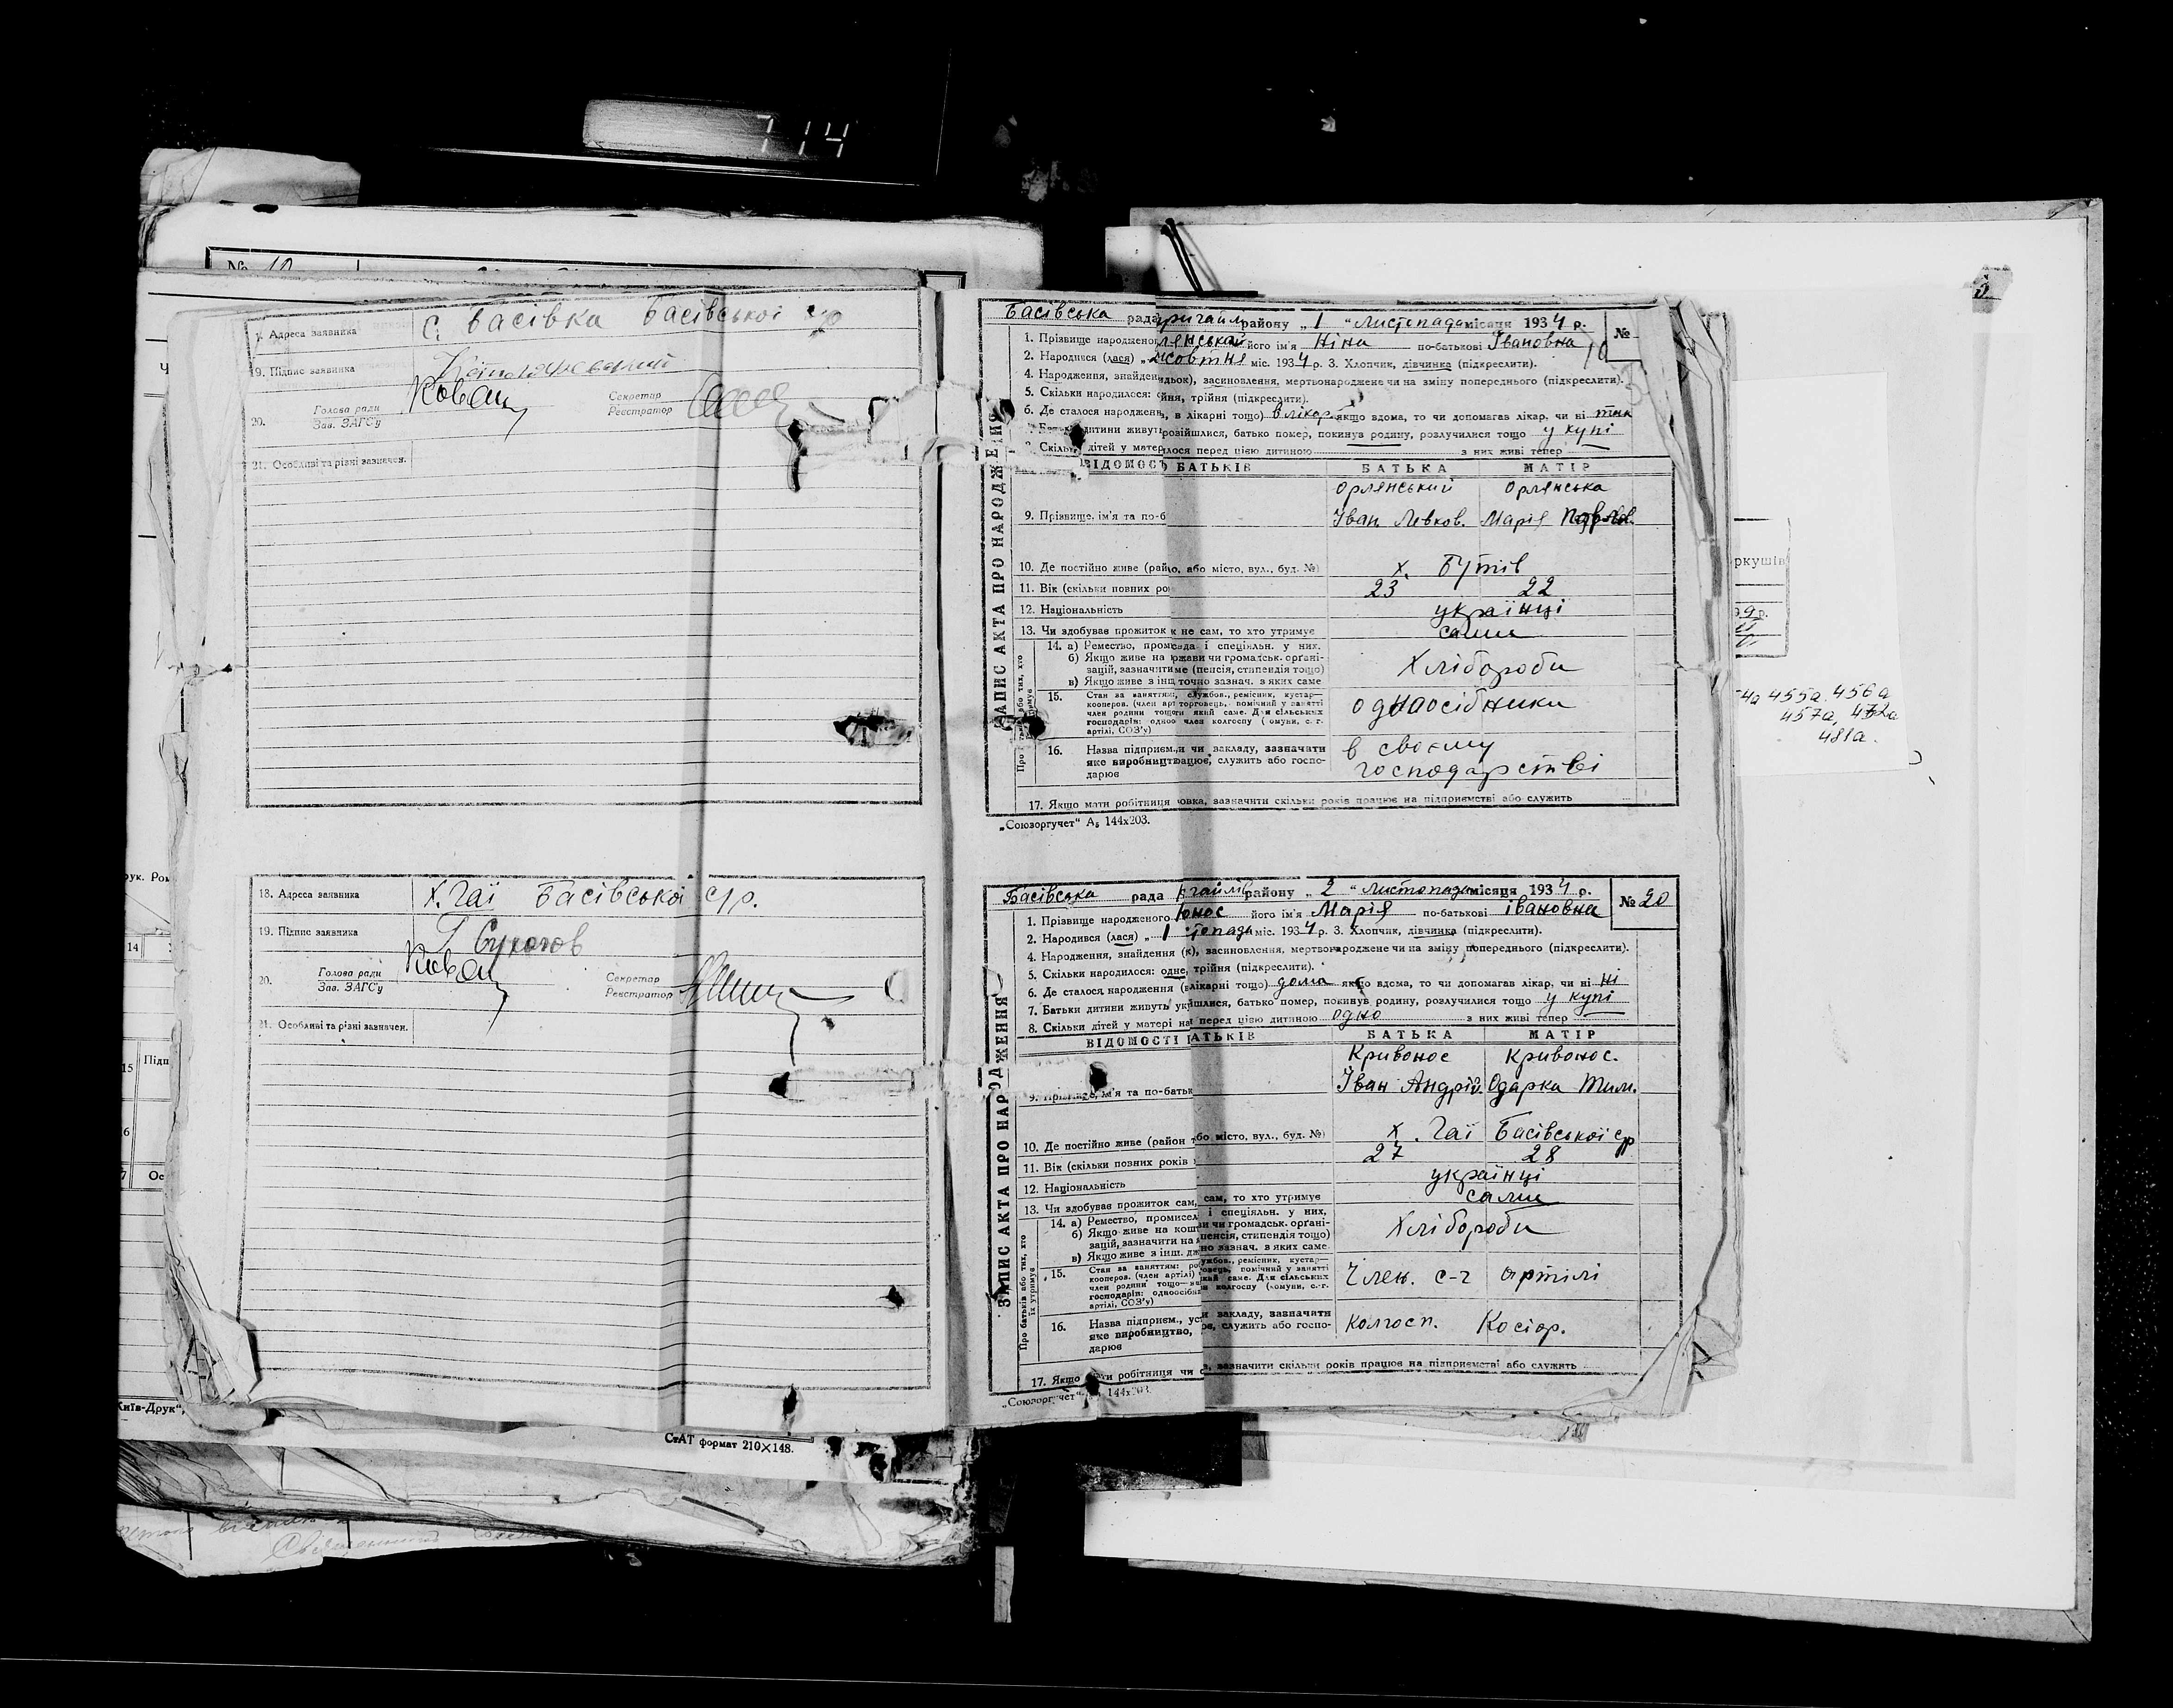 714
№ 10
Адреса заявника с. Басівка Басівської с/р
19. Підпис заявника
20. Голова ради Зав. ЗАГС'у Секретар Реєстратор
21. Особливі та різні зазначен.
18. Адреса заявника х. Гаї Басівської с/р.
19. Підпис заявника
20. Голова ради Зав. ЗАГС'у Секретар Реєстратор
21. Особливі та різні зазначен.
СтАТ формат 210×148.
Київ-Друк",
ЗАПИС АКТА ПРО НАРОДЖЕННЯ
Басівська рада району „ 1 " Листопада місяця 1934 р. №
1. Прізвище народженог його ім'я Ніна по-батькові Івановна
2. Народився (лася) „ жовтня міс. 1934 р. 3. Хлопчик, дівчинка (підкреслити).
4. Народження, знайден ідьок), засиновлення, мертвонароджене чи на зміну попереднього (підкреслити).
5. Скільки народилося: йня, трійня (підкреслити).
6. Де сталося народжень, в лікарні тощо) в лікар якщо вдома, то чи допомагав лікар, чи ні так
дитини живуть розійшлися, батько помер, покинув родину, розлучилися тощо у купі
Скільк дітей у матер лося перед цією дитиною з них живі тепер
ВІДОМОСТ БАТЬКІВ БАТЬКА МАТІР
Орлянський Орлянська
9. Прізвище, ім'я та по-б Іван Левков. Марія Павлов.
10. Де постійно живе (райо, або місто, вул., буд. №) х. Бутів
11. Вік (скільки повних ро 23 22
12. Національність українці
13. Чи здобуває прожиток к не сам, то хто утримує сами
14. а) Ремесло, пром сада і спеціяльн. у них.
б) Якщо живе на ржави чи громадськ. орґані-
зацій, зазначити ме (пенсія, стипендія тощо) Хлібороби
в) Якщо живе з інш точно зазнач. з яких саме
15. Стан за заняттям, службов., ремісник, кустар— одноосібники
кооперов. (член арт торговець, помічний у занятті
член родини тощо яий саме. Для сільських
господарів: одноо член колгоспу (омуни, с.-г.
артілі, СОЗ'у)
16. Назва підприєм., и чи закладу, зазначати в своєму
яке виробництво ацює, служить або госпо- господарстві
дарює
17. Якщо мати робітниця овка, зазначити скільки років працює на підприємстві або служить
„Союзоргучет" А₅ 144х203.
ЗАПИС АКТА ПРО НАРОДЖЕННЯ
Басівська рада району „ 2 " Листопада місяця 1934 р. № 20
1. Прізвище народженого його ім'я Марія по-батькові Івановна
2. Народився (лася) „ 1 міс. 1934 р. 3. Хлопчик, дівчинка (підкреслити).
4. Народження, знайдення (к), засиновлення, мертвонароджене чи на зміну попереднього (підкреслити).
5. Скільки народилося: одне, трійня (підкреслити).
6. Де сталося народження (в лікарні тощо) дома якщо вдома, то чи допомагав лікар, чи ні ні
7. Батьки дитини живуть ук йшлися, батько помер, покинув родину, розлучилися тощо у купі
8. Скільки дітей у матері на перед цією дитиною одно з них живі тепер
ВІДОМОСТІ АТЬКІВ БАТЬКА МАТІР
Кривонос Кривонос.
9. Прізвище, ім'я та по-батьк Іван Андрій. Одарка Тим.
10. Де постійно живе (район або місто, вул., буд. №) х. Гаї Басівської с/р
11. Вік (скільки повних років 27 28
12. Національність українці
13. Чи здобуває прожиток сам, сам, то хто утримує сами
14. а) Ремесло, промисел і спеціяльн. у них,
б) Якщо живе на кош и чи громадськ. орґані- Хлібороби
зацій, зазначити на пенсія, стипендія тощо)
в) Якщо живе з інш. дж но зазнач. з яких саме
15. Стан за заняттям: роб ужбов., ремісник, кустар—
кооперов. (член артілі) овець, помічний у занятті Член. с-г артілі
член родини тощо— кий саме. Для сільських
господарів: одноосібн колгоспу (комуни, с.-г.
артілі, СОЗ'у)
16. Назва підприєм., уст и закладу, зазначати колгосп. Косіор.
яке виробництво, ює, служить або госпо-
дарює
17. Якщо мати робітниця чи с, зазначити скільки років працює на підприємстві або служить
„Союзоргучет" 144х203.
ркушів
455а, 456а
457а, 472а
481а.